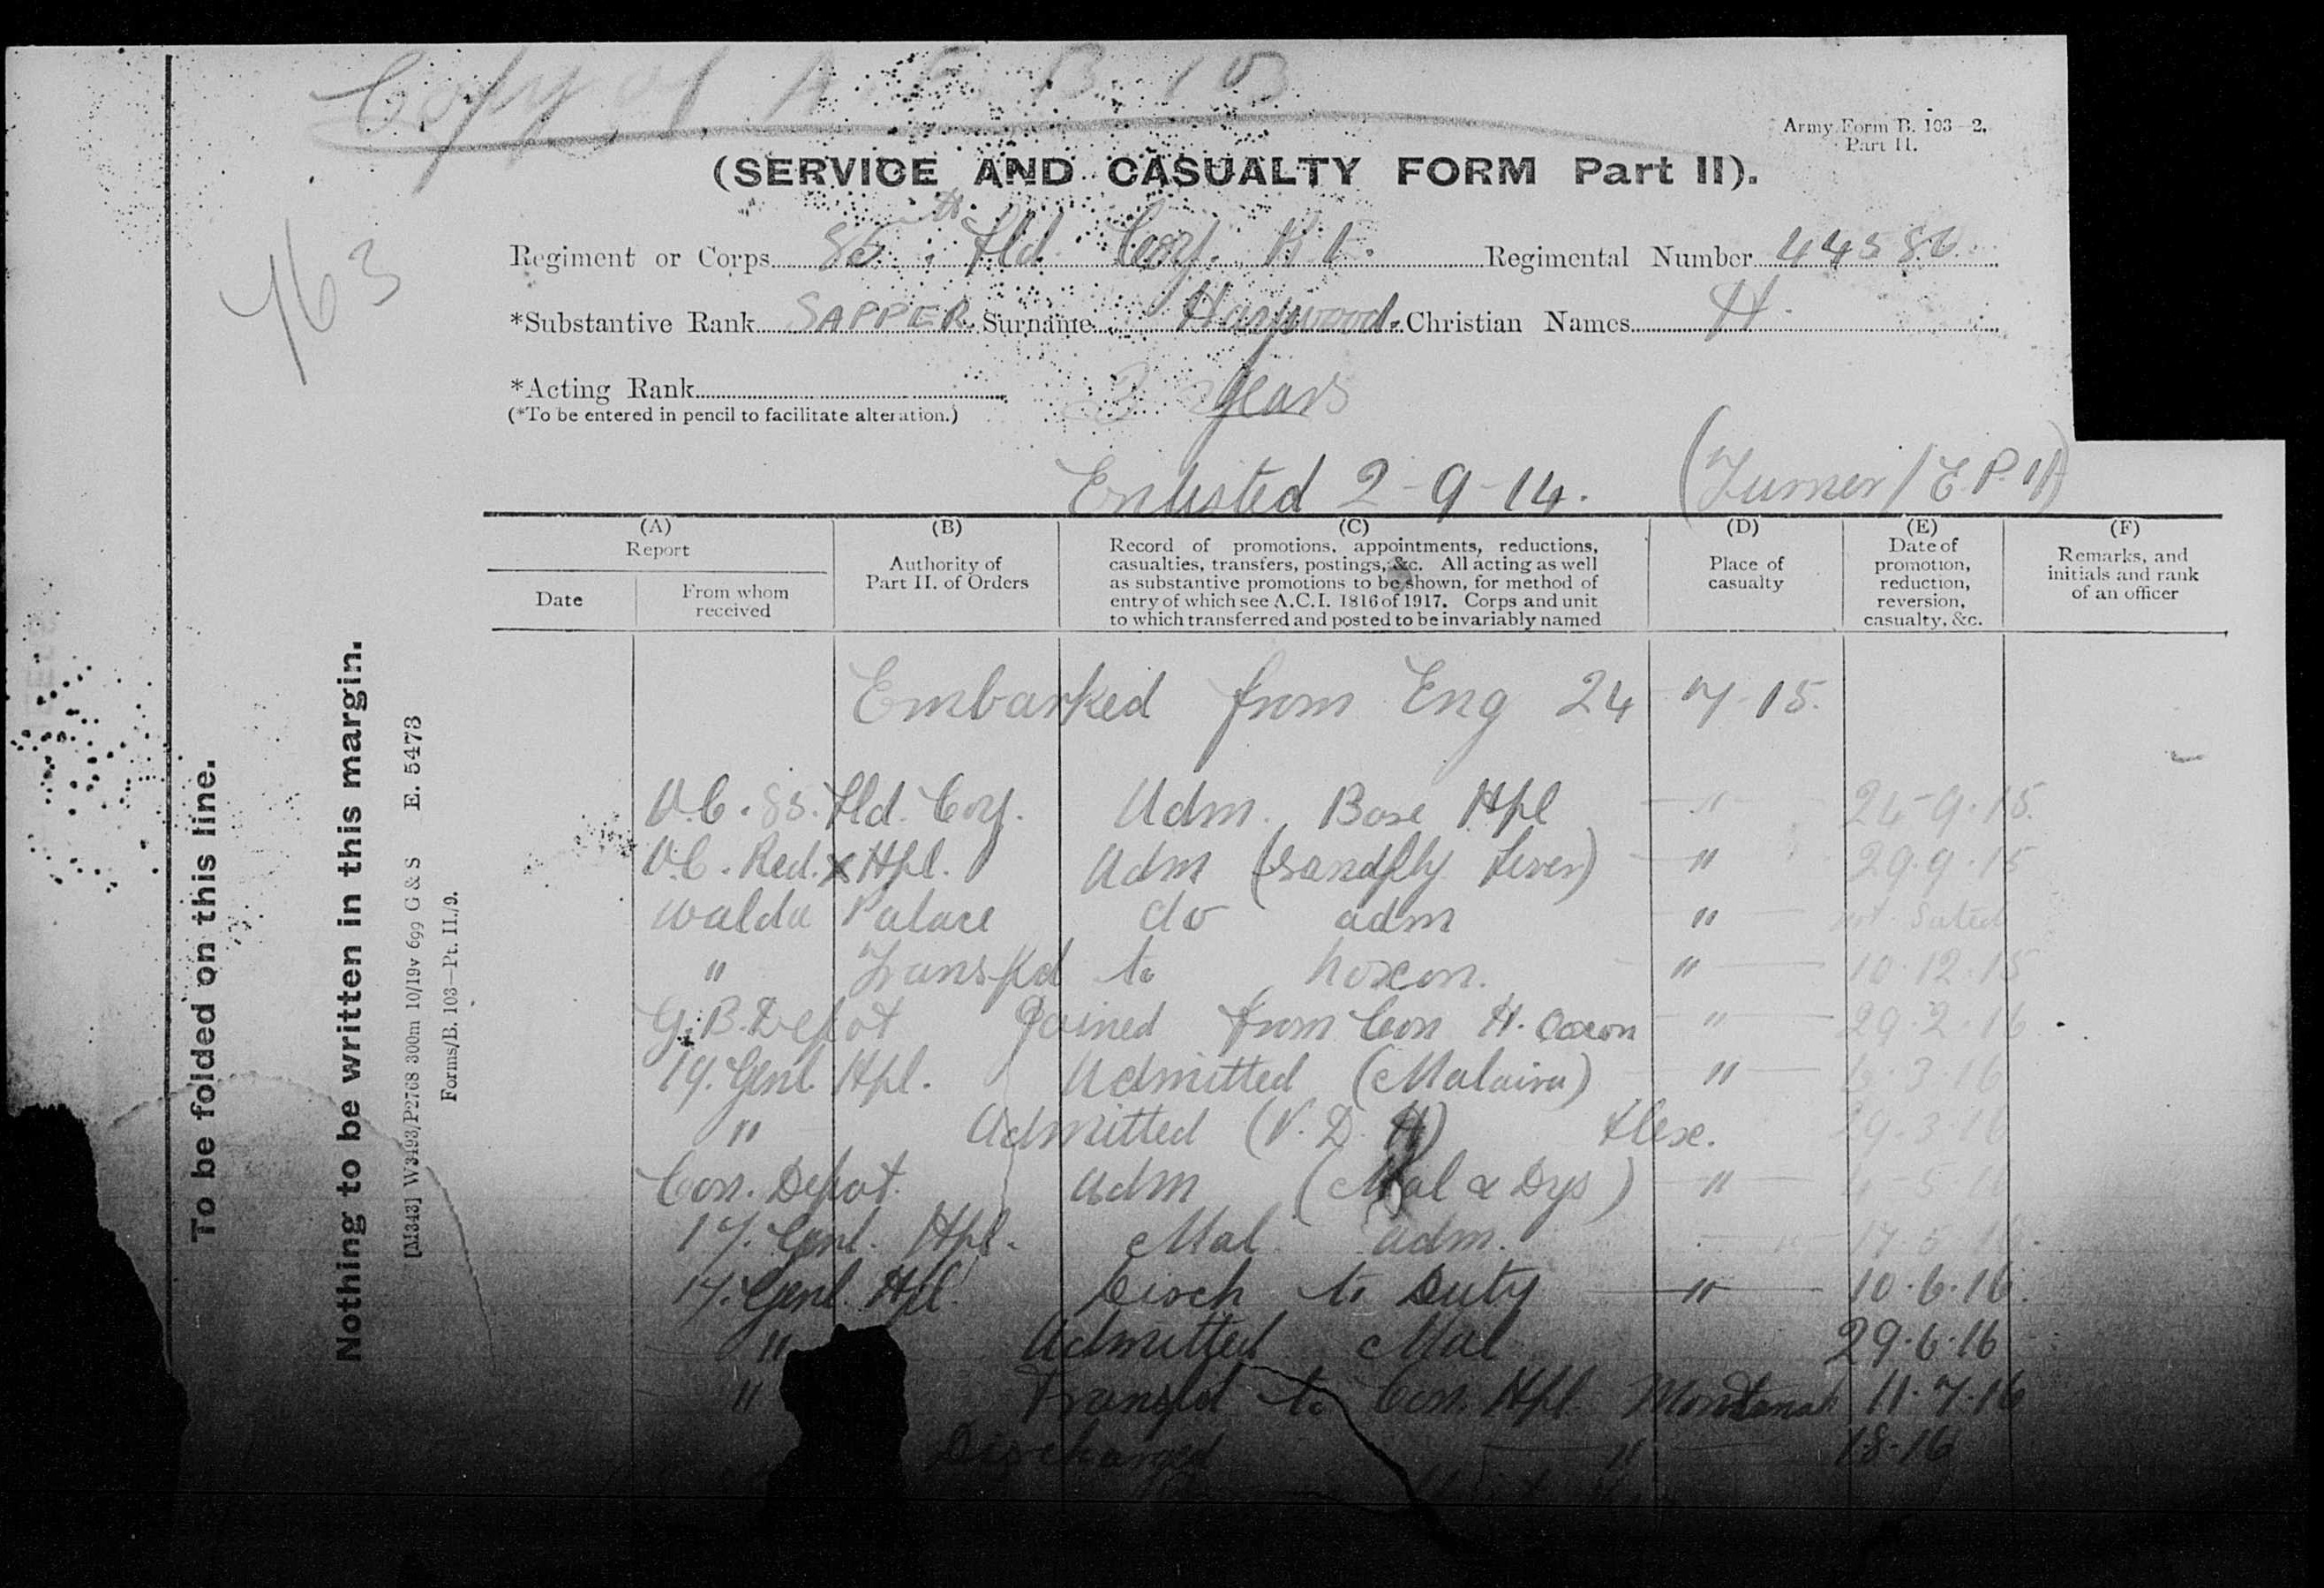 Copy of A.F. B. 103
Army Form B. 103—2.
Part II.
(SERVICE AND CASUALTY FORM Part II).
463
Regiment or Corps 85th Fld Coy. R.E. Regimental Number 44586
*Substantive Rank SAPPER Surname Harwood. Christian Names H.
*Acting Rank 3 years
(*To be entered in pencil to facilitate alteration.)
Enlisted 2-9-14. (Turner/E.P.
(A) (B) (C) (D) (E) (F)
Report
Date
From whom received
Authority of
Part II. of Orders
Record of promotions, appointments, reductions,
casualties, transfers, postings, &c. All acting as well
as substantive promotions to be shown, for method of
entry of which see A.C.I. 1816 of 1917. Corps and unit
to which transferred and posted to be invariably named
Place of
casualty
Date of
promotion,
reduction,
reversion,
casualty, &c.
Remarks, and
initials and rank
of an officer
Embarked from Eng 24 7-15.
O.C. 85. Fld. Coy. Adm. Base Hpl " -9-15.
O.C. Red. X Hpl. Adm (Sandfly fever) " 29.9.15
Walda Palace do adm " not stated
" Transfd to " 10.12.15
G.B. Depot Joined from Con H. " 29.2.16
19. Genl. Hpl. Admitted (Malaira) " 3.16
" Admitted (V.D.H) Alex. 29.3.16
Con. Depot. Adm (Mal & Dys) " 5 16
17. Genl. Hpl. Mal adm. " 17.5.16.
17. Genl. Hpl. Disch to Duty " 10.6.16.
" Admitted Mal 29.6.16
" Transfd to Con. Hpl Montana 11.7.16
Discharged " 1.8.16
To be folded on this line.
Nothing to be written in this margin.
[A1343] W3193/P2768 300m 10/19v 699 G & S E. 5473
Forms/B. 103—Pt. II./9.